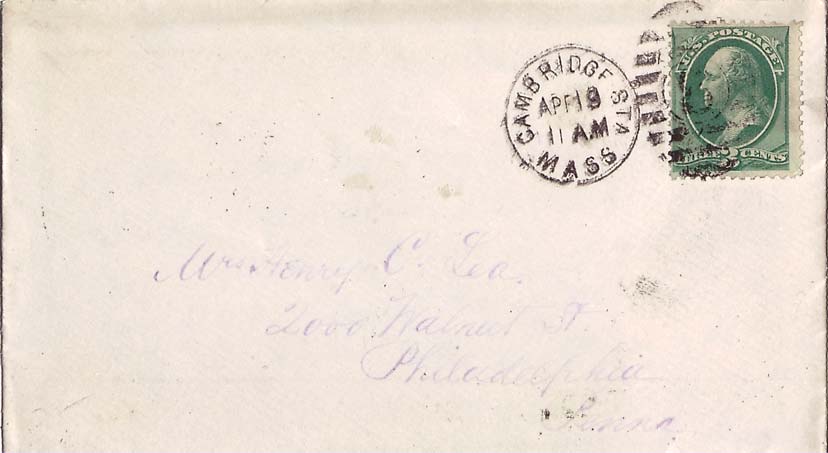 CAMBRIDGE STA
APR 19
11 AM
MASS
U.S. POSTAGE
THREE 3 CENTS
Mrs Henry C. Lea.
2000 Walnut St.
Philadelphia
Penna